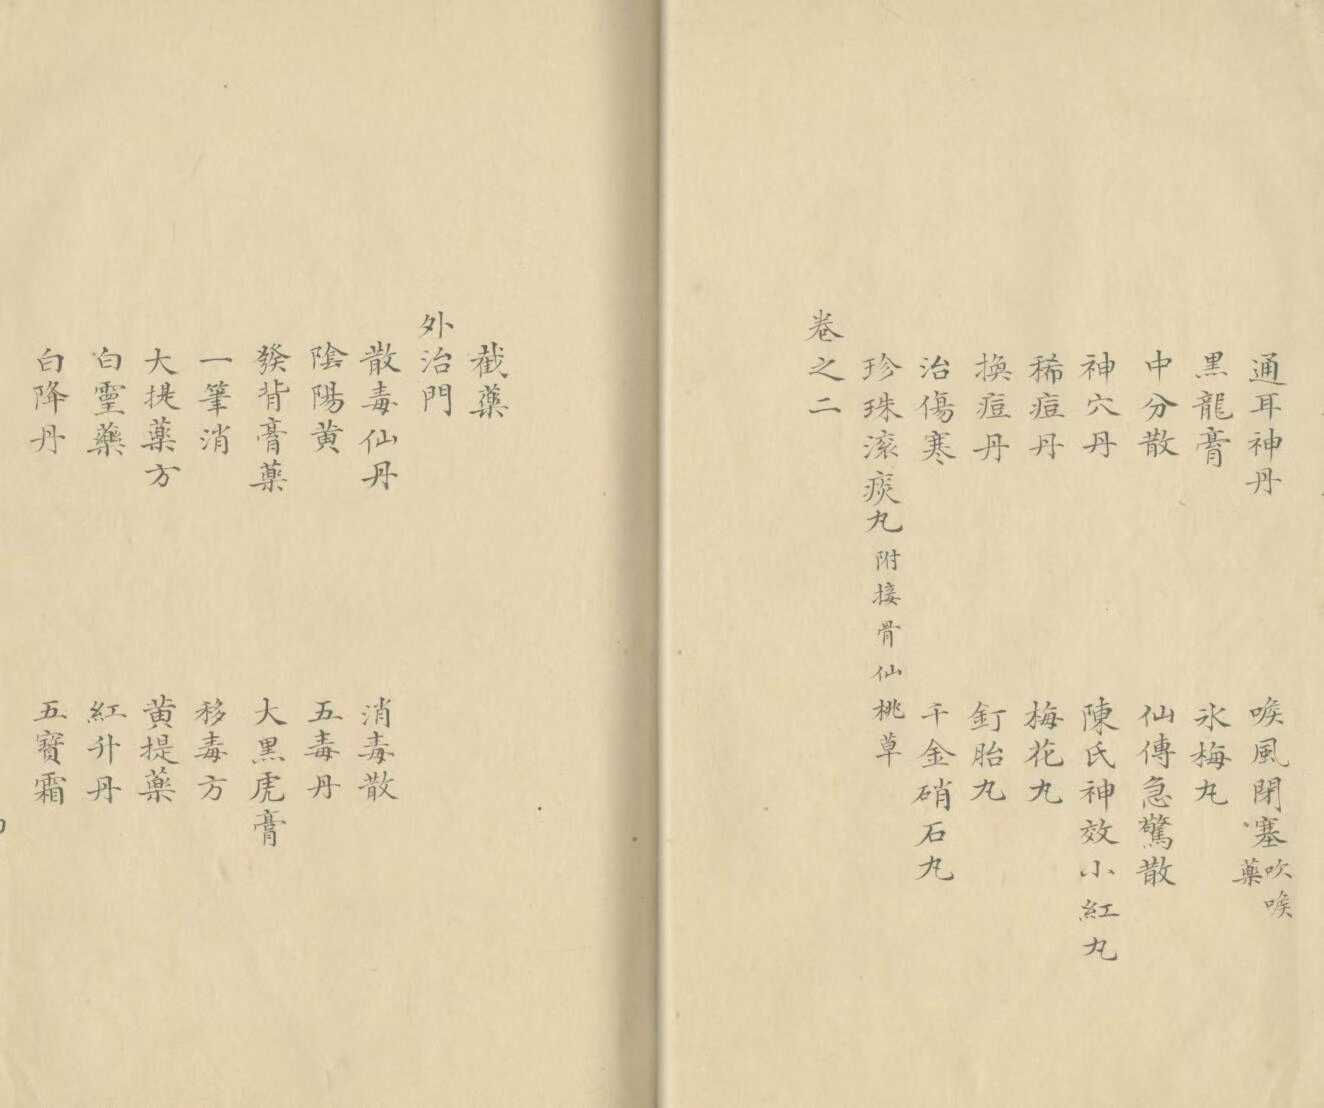 通耳神丹　喉風閉塞吹喉藥
黑龍膏　氷梅丸
中分散　仙傳急驚散
神穴丹　陳氏神效小紅丸
稀痘丹　梅花丸
換痘丹　釘胎丸
治傷寒　千金硝石丸
珍珠滚痰丸附接骨仙桃草
卷之二
截藥
外治門
散毒仙丹　消毒散
陰陽黄　五毒丹
發背膏藥　大黑虎膏
一筆消　移毒方
大提藥方　黄提藥
白靈藥　紅升丹
白降丹　五寳霜